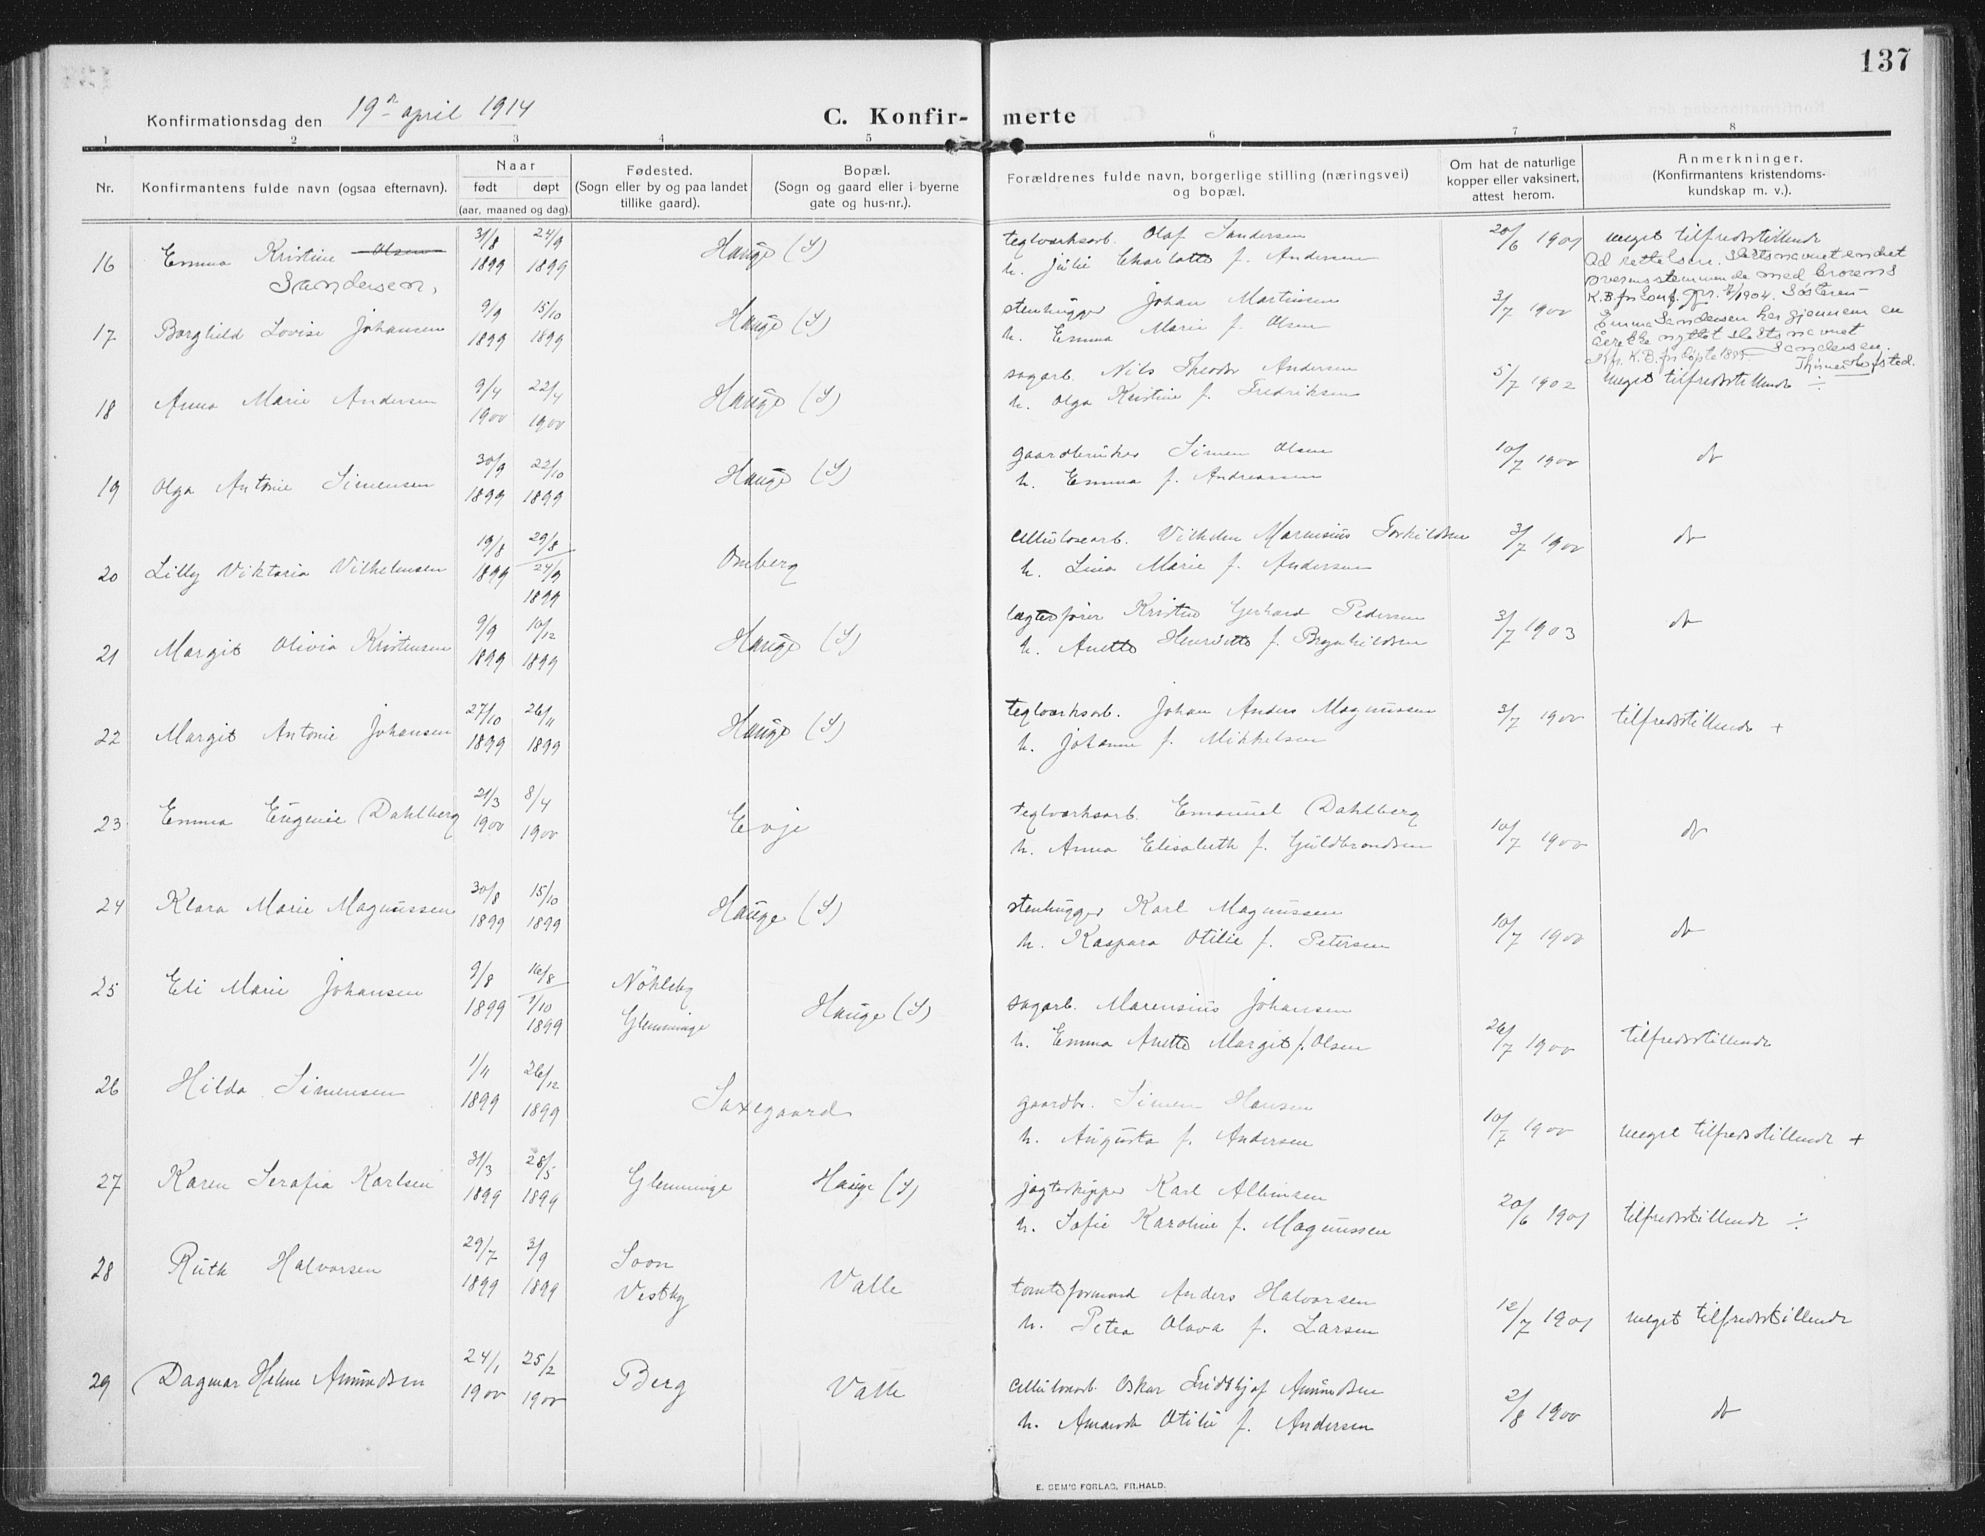 137
Konfirmationsdag den 19de april 1914
C. Konfirmerte
1 2 3 4 5 6 7 8
Nr.
Konfirmantens fulde navn (ogsaa efternavn).
Naar
født døpt
(aar, maaned og dag).
Fødested.
(Sogn eller by og paa landet
tillike gaard).
Bopæl.
(Sogn og gaard eller i byerne
gate og hus-nr.).
Forældrenes fulde navn, borgerlige stilling (næringsvei)
og bopæl.
Om hat de naturlige
kopper eller vaksinert,
attest herom.
Anmerkninger.
(Konfirmantens kristendoms-
kundskap m. v.).
16 Emma Kristine Olsen 31/8 1899 24/9 1899 Hauge (S) teglværksarb. Olaf Sandersen 20/6 1901 meget tilfredsstillende
Sandersen. h. Julie Charlotte f. Andersen
Ad rettelsen. Slektsnavnet endret
overensstemmende med brorens
K.B. for konf. 1904. Søsteren
Emma Sandersen har gjennem en
årrekke nyttet slektsnavnet
Sandersen.
K.B. for døpte
17 Borghild Lovise Johansen 9/9 1899 15/10 1899 Hauge (S) stenhugger Johan Martinsen 3/7 1900
h. Emma Marie f. Olsen
18 Anna Marie Andersen 9/4 1900 22/4 1900 Hauge (S) sagarb. Nils Theodor Andersen 5/7 1902 meget tilfredsstillende ÷
h. Olga Kristine f. Fredriksen
19 Olga Antonie Simensen 30/9 1899 22/10 1899 Hauge (S) gaardbruker Simen Olsen 10/7 1900 do
h. Emma f. Andreassen
20 Lilly Viktoria Vilhelmsen 19/8 1899 29/8 24/9 1899 Omberg cellulosearb. Vilhelm Marinius Torkildsen 3/7 1900 do
h. Lina Marie f. Andersen
21 Margit Olivia Kristensen 9/9 1899 10/12 1899 Hauge (S) lægterfører Kristen Gerhard Pedersen 3/7 1903 do
h. Anette Henriette f. Brynhildsen
22 Margit Antonie Johansen 27/10 1899 26/11 1899 Hauge (S) teglværksarb. Johan Anders Magnussen 3/7 1900 tilfredsstillende +
h. Johanne f. Mikkelsen
23 Emma Eugenie Dahlberg 21/3 1900 8/4 1900 Evje teglværksarb. Emanuel Dahlberg 10/7 1900 do
h. Anna Elisabeth f. Guldbrandsen
24 Klara Marie Magnussen 30/8 1899 15/10 1899 Hauge (S) stenhugger Karl Magnussen 10/7 1900 do
h. Kaspara Otilie f. Petersen
25 Eli Marie Johansen 9/8 1899 16/8 1/10 1899 Nöhleby Glemminge Hauge (S) sagarb. Marensius Johansen 26/7 1900 tilfredsstillende
h. Emma Anette Margit f. Olsen
26 Hilda Simensen 1/11 1899 26/12 1899 Saxegaard gaardbr. Simen Hansen 10/7 1900 meget tilfredsstillende +
h. Augusta f. Andersen
27 Karen Serafia Karlsen 31/3 1899 28/5 1899 Glemminge Hauge (S) jagtskipper Karl Albinsen 20/6 1901 tilfredsstillende ÷
h. Sofie Karoline f. Magnussen
28 Ruth Halvorsen 29/7 1899 3/9 1899 Soon Vestby Valle tomteformand Anders Halvorsen 12/7 1901 meget tilfredsstillende
h. Petra Olava f. Larsen
29 Dagmar Helene Amundsen 24/1 1900 25/2 1900 Berg Valle cellulosearb. Oskar Fridthjof Amundsen 2/8 1900 do
h. Amanda Otilie f. Andersen
E. SEM'S FORLAG, FR.HALD.